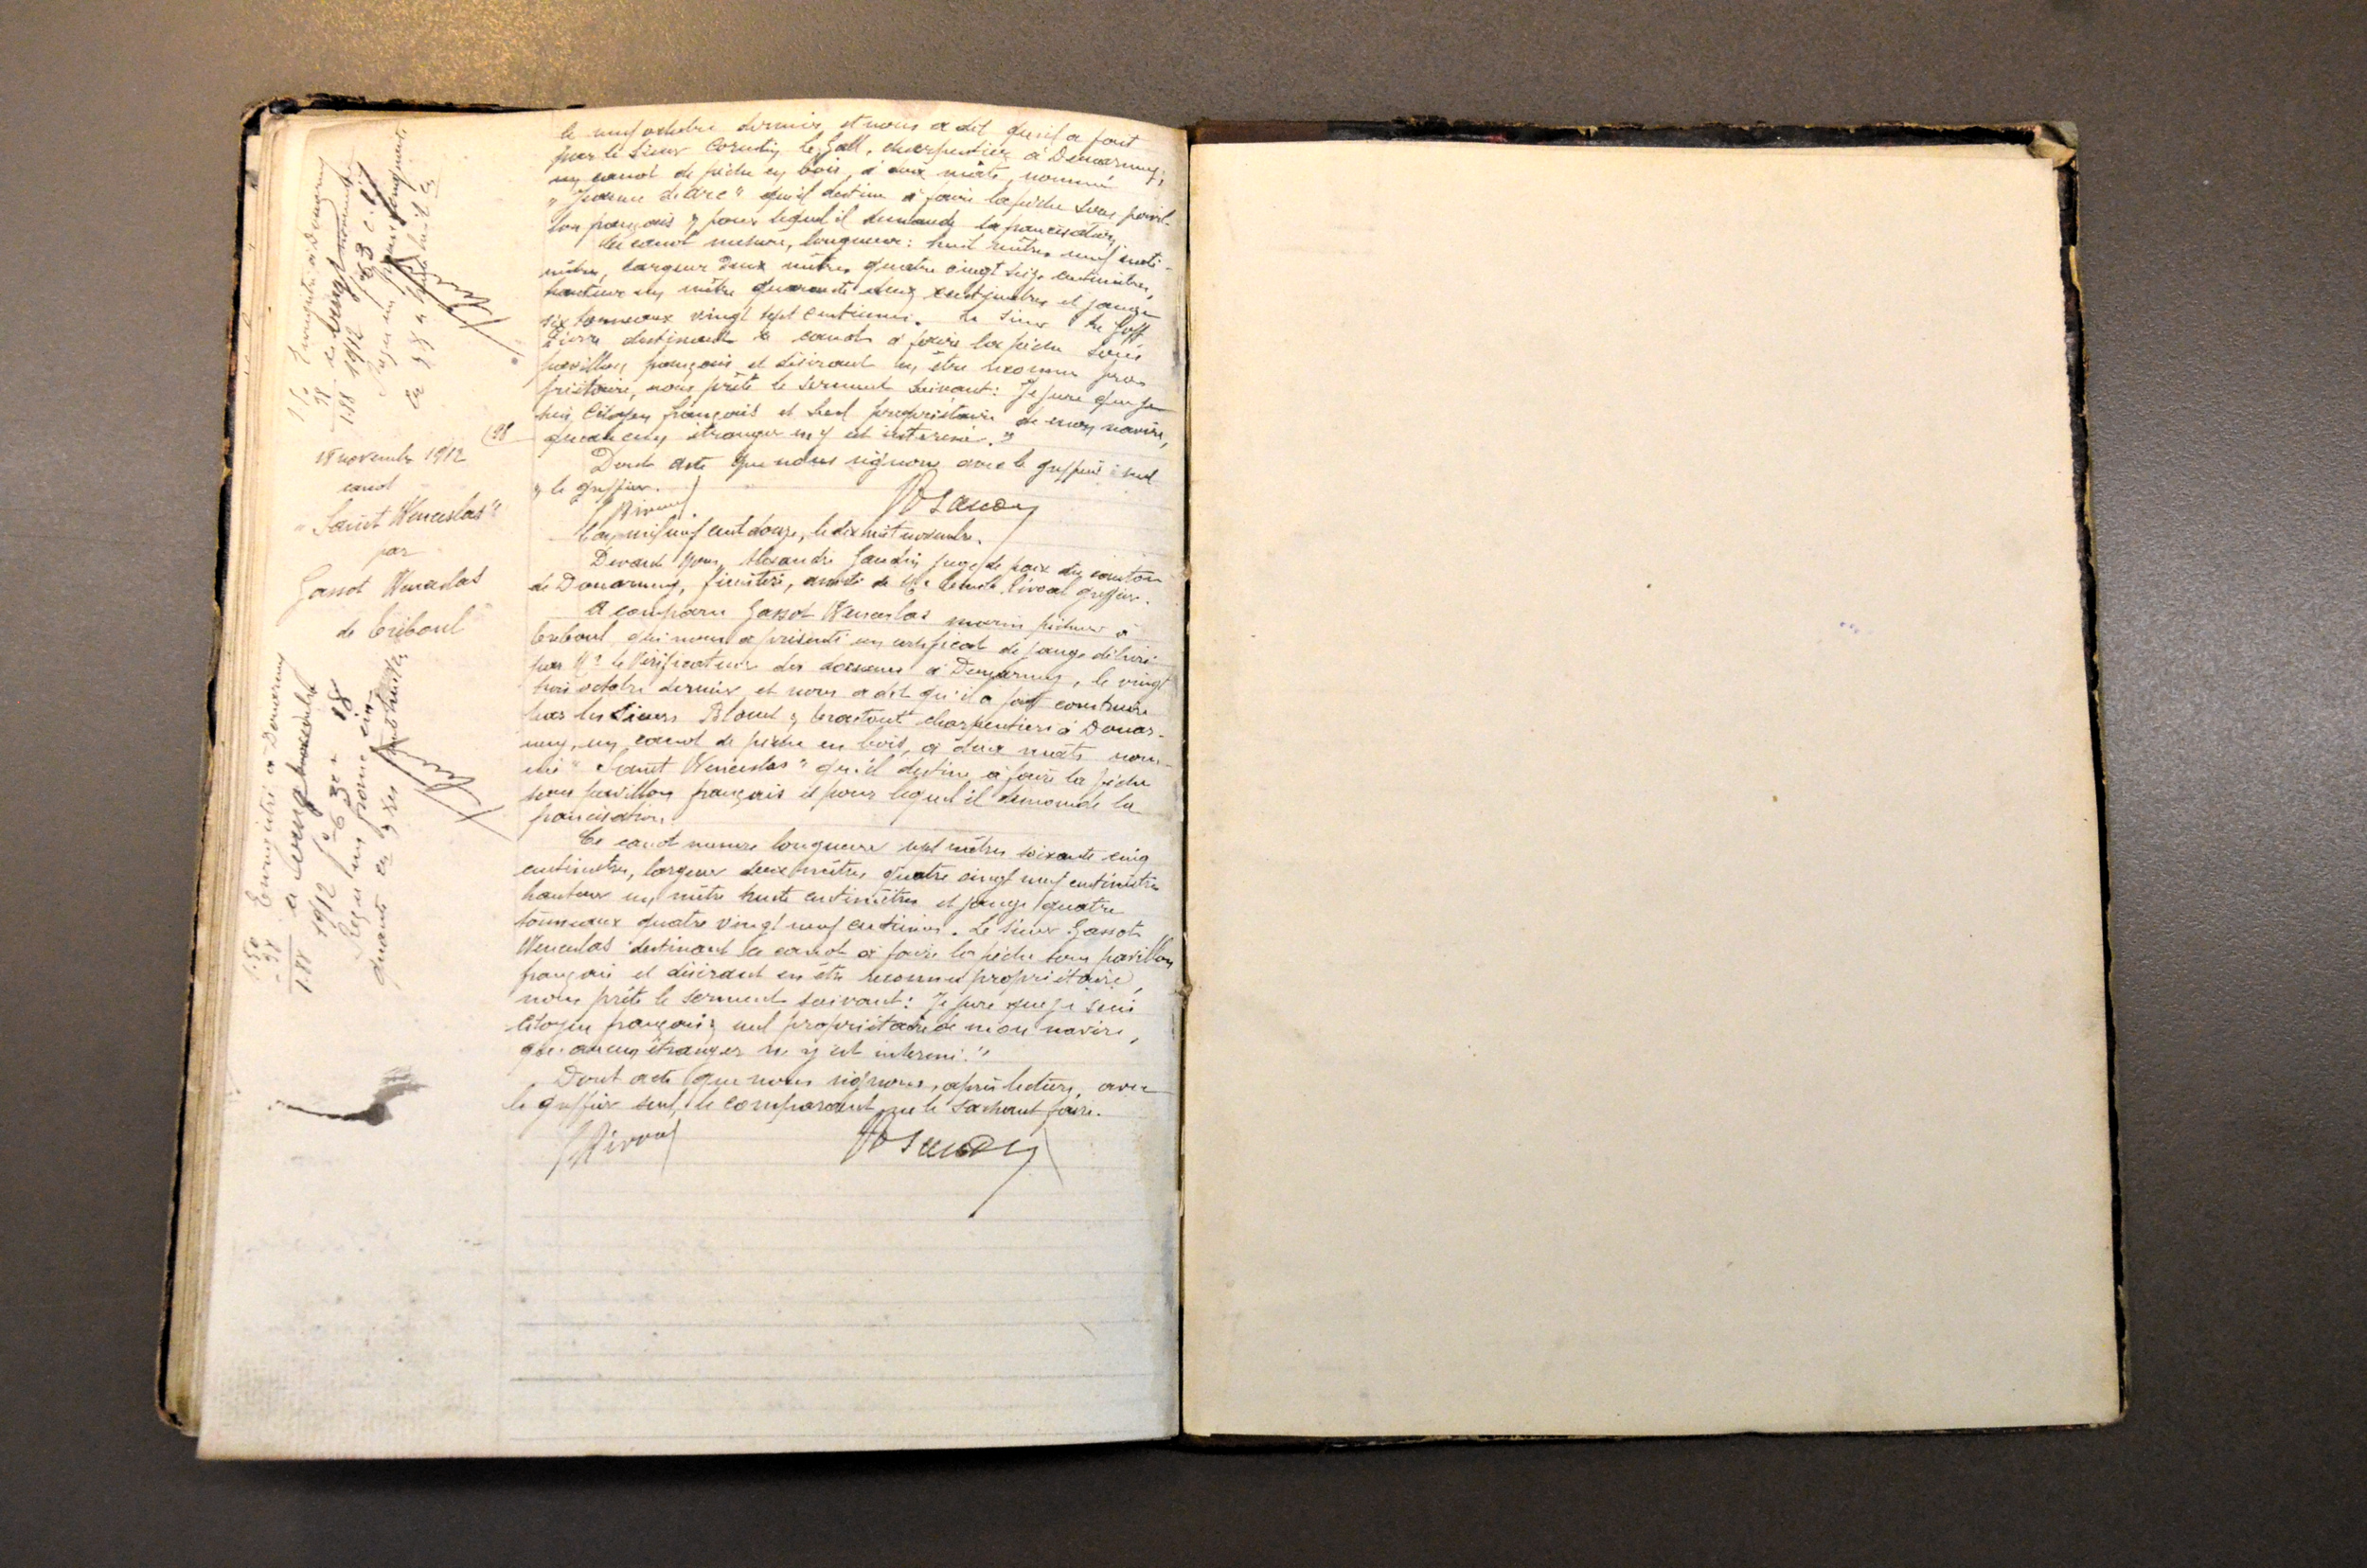 le neuf octobre dernier, et nous a dit qu'il a fait
par le sieur Corentin le Gall, charpentier à Douarnenez,
un canot de pêche en bois, à deux mâts, nommé
"Jeanne d'arc" qu'il destine à faire la pêche sous pavil-
lon français & pour lequel il demande la francisation.
Ce canot mesure, longueur: huit mètres neuf centi-
mètres, largeur deux mètres quatre vingt seize centimètres,
hauteur un mètre quarante deux centimètres et jauge
six tonneaux vingt sept centièmes. Le sieur Le Goff
Pierre destinant ce canot à faire la pêche sous
pavillon français et désirant en être reconnu pro-
priétaire, nous prête le serment suivant: Je jure que je
suis citoyen français et seul propriétaire de mon navire,
qu'aucun étranger n'y est intéressé."
Dont acte que nous signons avec le greffier seul
& le greffier.
98
18 novembre 1912
canot
"Saint Wenceslas"
par
Gassot Wenceslas
de Tréboul
L'an mil neuf cent douze, le dix huit novembre.
Devant Nous, Alexandre Gaudin juge de paix du canton
de Douarnenez, finistère, assisté de Me greffier.
A comparu Gassot Wenceslas marin pêcheur à
Tréboul, qui nous a présenté un certificat de jauge délivré
par Mr le Vérificateur des douanes à Douarnenez, le vingt
trois octobre dernier, et nous a dit qu'il a fait construire
par les sieurs charpentiers à Douar-
nenez, un canot de pêche en bois, à deux mâts nom-
mé "Saint Wenceslas" qu'il destine à faire la pêche
sous pavillon français et pour lequel il demande la
francisation.
Ce canot mesure longueur sept mètres soixante cinq
centimètres, largeur deux mètres quatre vingt neuf centimètres
hauteur un mètre trente centimètres et jauge quatre
tonneaux quatre vingt neuf centièmes. Le sieur Gassot
Wenceslas destinant ce canot à faire la pêche sous pavillon
français et désirant en être reconnu propriétaire,
nous prête le serment suivant: Je jure que je suis
citoyen français & seul propriétaire de mon navire,
qu'aucun étranger n'y est intéressé."
Dont acte que nous signons, après lecture, avec
le greffier seul, le comparant ne le sachant faire.
Enregistré à Douarnenez
le vingt novembre
1912 f° 63 c. 18
Reçu un franc cinquante
1.50
38
1.88